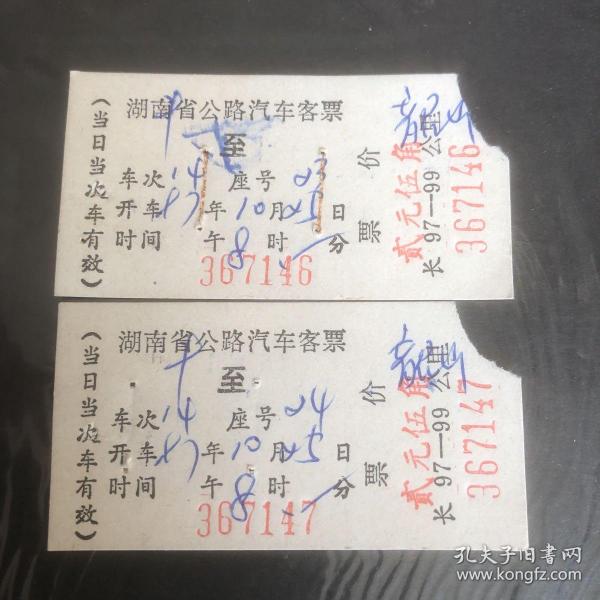 湖南省公路汽车客票
至
车次 14 座号 23
开车 87 年 10 月 25 日
时间 午 8 时 分
367146
(当日当次车有效)
票价
贰元伍角
长 97—99 公里
367146
湖南省公路汽车客票
至
车次 14 座号 24
开车 87 年 10 月 25 日
时间 午 8 时 分
367147
(当日当次车有效)
票价
贰元伍角
长 97—99 公里
367147
孔夫子旧书网
www.kongfz.com